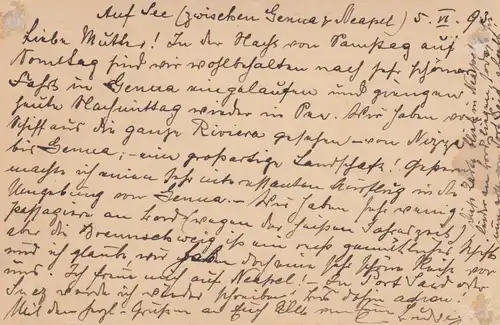 Auf See (zwischen Genua & Neapel) 5. VI. 93.
Liebe Mutter! In der Nacht von Samstag auf
Sonntag sind wir wohlbehalten nach sehr schöner
Fahrt in Genua eingelaufen und giengen
heute Nachmittag wieder in See. Wir haben vom
Schiff aus die ganze Riviera gesehen – von Nizza
bis Genua; – eine großartige Landschaft! Gestern
machte ich einen sehr interessanten Ausflug in die
Umgebung von Genua. – Wir haben sehr wenig
Passagiere an Bord (wegen der heißen Jahreszeit),
aber die Braunschweig ist ein recht gemütliches Schiff
und ich glaube, wir haben doch eine sehr schöne Reise vor
uns. Ich freue mich auf Neapel! In Port Said oder
Suez werde ich wieder schreiben; bis dahin adieu.
Mit den herzl. Grüßen an Euch Alle